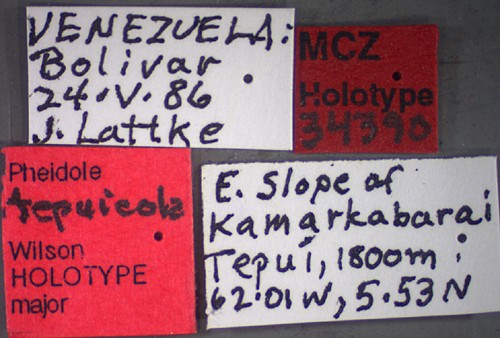 VENEZUELA:
Bolivar
24.V.86
J. Lattke
MCZ
Holotype
34390
Pheidole
tepuicola
Wilson
HOLOTYPE
major
E. Slope of
Kamarkabarai
Tepui, 1800m.
62.01W, 5.53N